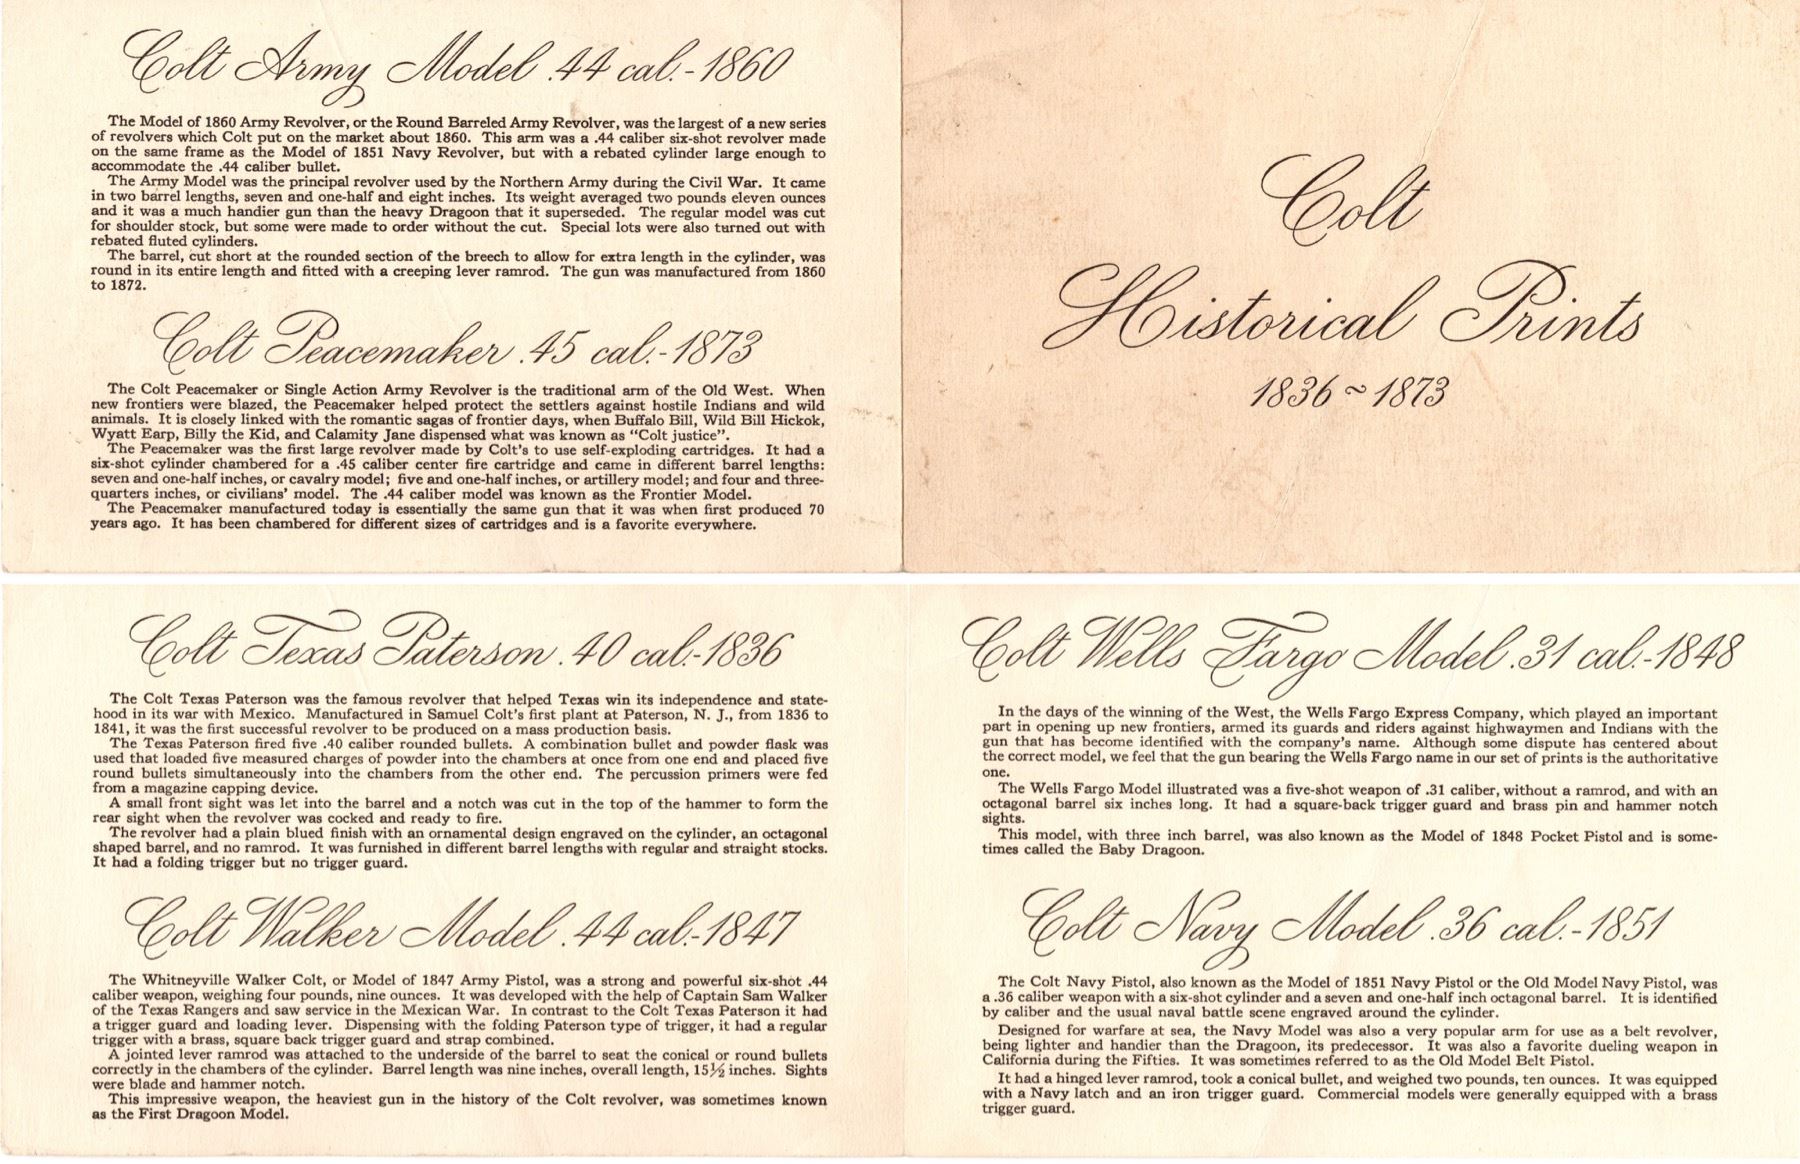 Colt Army Model .44 cal.-1860
The Model of 1860 Army Revolver, or the Round Barreled Army Revolver, was the largest of a new series
of revolvers which Colt put on the market about 1860. This arm was a .44 caliber six-shot revolver made
on the same frame as the Model of 1851 Navy Revolver, but with a rebated cylinder large enough to
accommodate the .44 caliber bullet.
The Army Model was the principal revolver used by the Northern Army during the Civil War. It came
in two barrel lengths, seven and one-half and eight inches. Its weight averaged two pounds eleven ounces
and it was a much handier gun than the heavy Dragoon that it superseded. The regular model was cut
for shoulder stock, but some were made to order without the cut. Special lots were also turned out with
rebated fluted cylinders.
The barrel, cut short at the rounded section of the breech to allow for extra length in the cylinder, was
round in its entire length and fitted with a creeping lever ramrod. The gun was manufactured from 1860
to 1872.
Colt Peacemaker .45 cal.-1873
The Colt Peacemaker or Single Action Army Revolver is the traditional arm of the Old West. When
new frontiers were blazed, the Peacemaker helped protect the settlers against hostile Indians and wild
animals. It is closely linked with the romantic sagas of frontier days, when Buffalo Bill, Wild Bill Hickok,
Wyatt Earp, Billy the Kid, and Calamity Jane dispensed what was known as “Colt justice”.
The Peacemaker was the first large revolver made by Colt's to use self-exploding cartridges. It had a
six-shot cylinder chambered for a .45 caliber center fire cartridge and came in different barrel lengths:
seven and one-half inches, or cavalry model; five and one-half inches, or artillery model; and four and three-
quarters inches, or civilians' model. The .44 caliber model was known as the Frontier Model.
The Peacemaker manufactured today is essentially the same gun that it was when first produced 70
years ago. It has been chambered for different sizes of cartridges and is a favorite everywhere.
Colt
Historical Prints
1836 ~ 1873
Colt Texas Paterson .40 cal.-1836
The Colt Texas Paterson was the famous revolver that helped Texas win its independence and state-
hood in its war with Mexico. Manufactured in Samuel Colt's first plant at Paterson, N. J., from 1836 to
1841, it was the first successful revolver to be produced on a mass production basis.
The Texas Paterson fired five .40 caliber rounded bullets. A combination bullet and powder flask was
used that loaded five measured charges of powder into the chambers at once from one end and placed five
round bullets simultaneously into the chambers from the other end. The percussion primers were fed
from a magazine capping device.
A small front sight was let into the barrel and a notch was cut in the top of the hammer to form the
rear sight when the revolver was cocked and ready to fire.
The revolver had a plain blued finish with an ornamental design engraved on the cylinder, an octagonal
shaped barrel, and no ramrod. It was furnished in different barrel lengths with regular and straight stocks.
It had a folding trigger but no trigger guard.
Colt Walker Model .44 cal.-1847
The Whitneyville Walker Colt, or Model of 1847 Army Pistol, was a strong and powerful six-shot .44
caliber weapon, weighing four pounds, nine ounces. It was developed with the help of Captain Sam Walker
of the Texas Rangers and saw service in the Mexican War. In contrast to the Colt Texas Paterson it had
a trigger guard and loading lever. Dispensing with the folding Paterson type of trigger, it had a regular
trigger with a brass, square back trigger guard and strap combined.
A jointed lever ramrod was attached to the underside of the barrel to seat the conical or round bullets
correctly in the chambers of the cylinder. Barrel length was nine inches, overall length, 15½ inches. Sights
were blade and hammer notch.
This impressive weapon, the heaviest gun in the history of the Colt revolver, was sometimes known
as the First Dragoon Model.
Colt Wells Fargo Model .31 cal.-1848
In the days of the winning of the West, the Wells Fargo Express Company, which played an important
part in opening up new frontiers, armed its guards and riders against highwaymen and Indians with the
gun that has become identified with the company's name. Although some dispute has centered about
the correct model, we feel that the gun bearing the Wells Fargo name in our set of prints is the authoritative
one.
The Wells Fargo Model illustrated was a five-shot weapon of .31 caliber, without a ramrod, and with an
octagonal barrel six inches long. It had a square-back trigger guard and brass pin and hammer notch
sights.
This model, with three inch barrel, was also known as the Model of 1848 Pocket Pistol and is some-
times called the Baby Dragoon.
Colt Navy Model .36 cal.-1851
The Colt Navy Pistol, also known as the Model of 1851 Navy Pistol or the Old Model Navy Pistol, was
a .36 caliber weapon with a six-shot cylinder and a seven and one-half inch octagonal barrel. It is identified
by caliber and the usual naval battle scene engraved around the cylinder.
Designed for warfare at sea, the Navy Model was also a very popular arm for use as a belt revolver,
being lighter and handier than the Dragoon, its predecessor. It was also a favorite dueling weapon in
California during the Fifties. It was sometimes referred to as the Old Model Belt Pistol.
It had a hinged lever ramrod, took a conical bullet, and weighed two pounds, ten ounces. It was equipped
with a Navy latch and an iron trigger guard. Commercial models were generally equipped with a brass
trigger guard.